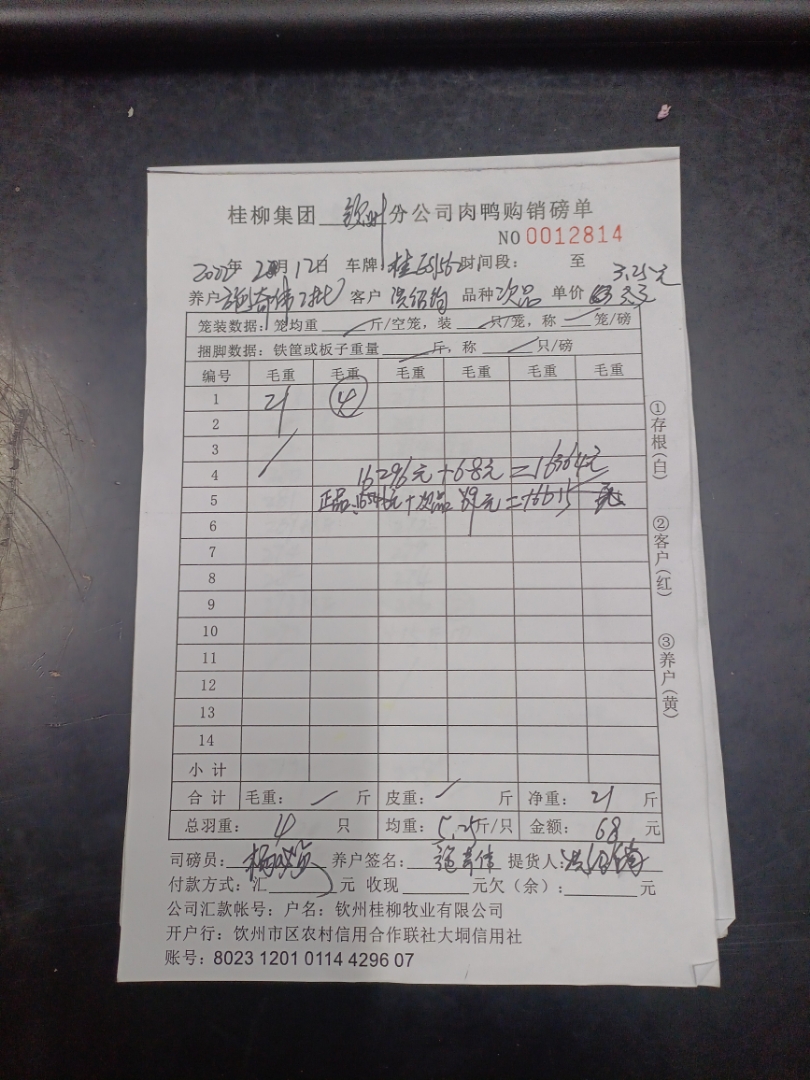 桂柳集团 钦州 分公司肉鸭购销磅单
NO 0012814
2022年 2月12日 车牌 桂 时间段： 至
3.25元
养户 客户 品种 次品 单价
笼装数据：笼均重 斤/空笼，装 只/笼，称 笼/磅
捆脚数据：铁筐或板子重量 斤，称 只/磅
编号 毛重 毛重 毛重 毛重 毛重 毛重
1 21 4
2
3
4 16296元+68元=16364元
5 正品 元+次品 元=16615
6
7
8
9
10
11
12
13
14
小计
合计 毛重： 斤 皮重： 斤 净重： 21 斤
总羽重： 4 只 均重： 5.25斤/只 金额： 68 元
司磅员： 养户签名： 提货人：
付款方式：汇 元 收现 元欠（余）： 元
公司汇款帐号：户名：钦州桂柳牧业有限公司
开户行：饮州市区农村信用合作联社大垌信用社
账号：8023 1201 0114 4296 07
①存根(白)
②客户(红)
③养户(黄)